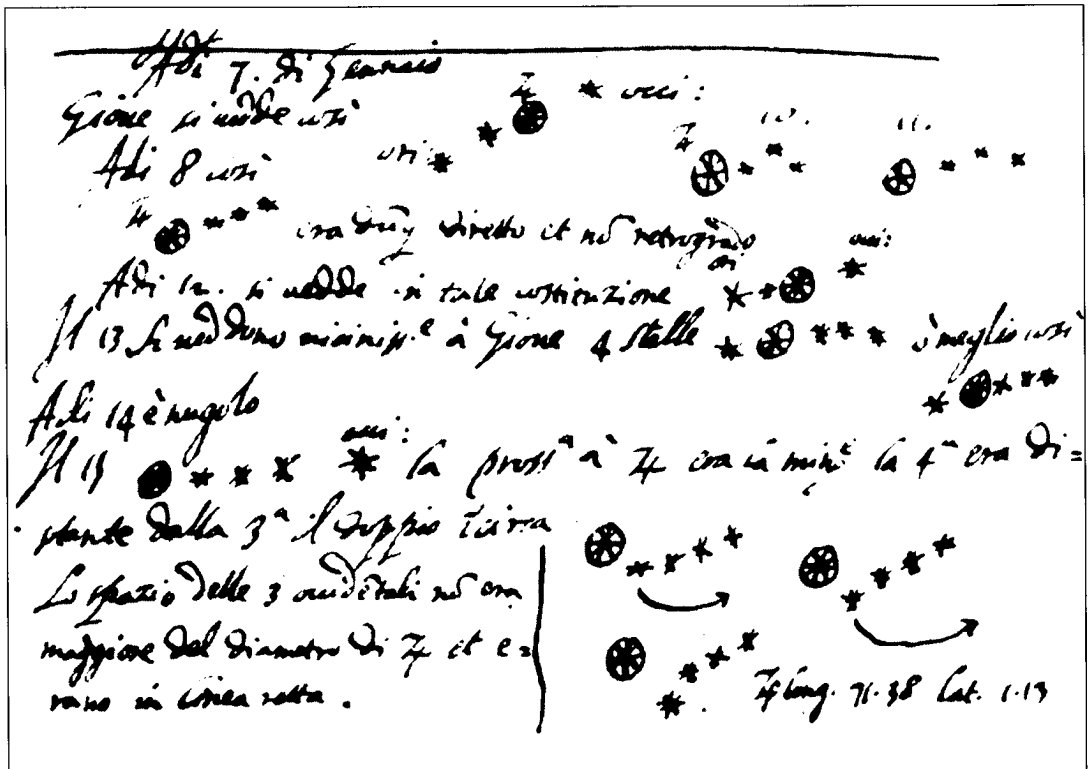 Adi 7. di Gennaio
Gioue si uedde così ♃ occi:
Adi 8 così ori: ♃ 10. 11.
♃ era dūq diretto et nō retrogrado
Adi 12. si uedde in tale costituzione ori occi:
Il 13 si ueddono uicinisse à Gioue 4 stelle ò meglio così
Adi 14 è nugolo
Il 15 occi: la prossa à ♃ era la mine la 4a era di=
stante dalla 3a il doppio circa
Lo spazio delle 3 occidētali nō era
maggiore del diametro di ♃ et e=
rano in linea retta.
♃ long. 71.38 lat. 1.13